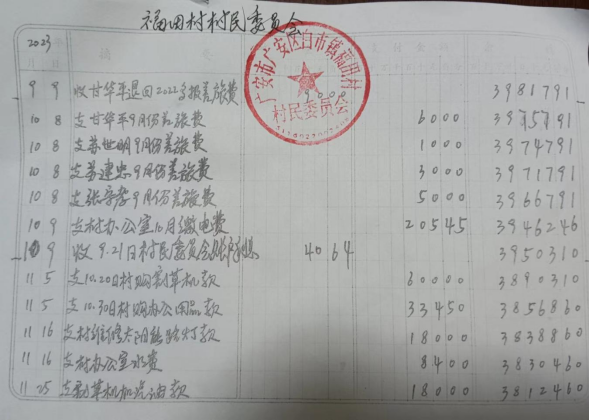 福田村村民委员会
2023
广安市广安区白市镇福田村
村民委员会
9 9 收甘华平退回2022多报差旅费 9000 3981791
10 8 支甘华平9月份差旅费 6000 3975791
10 8 支苏世明9月份差旅费 1000 3974791
10 8 支苏建忠9月份差旅费 3000 3971791
10 8 支张守孝9月份差旅费 5000 3966791
10 9 支村办公室10月缴电费 20545 3946246
10 9 收9.21日村民委员会账户 4064 3950310
11 5 支10.20日村购割草机款 60000 3890310
11 5 支10.30日村购办公用品款 33450 3856860
11 16 支村维修太阳能路灯款 18000 3838860
11 16 支村办公室水费 8400 3830460
11 25 支割草机加汽油款 18000 3812460